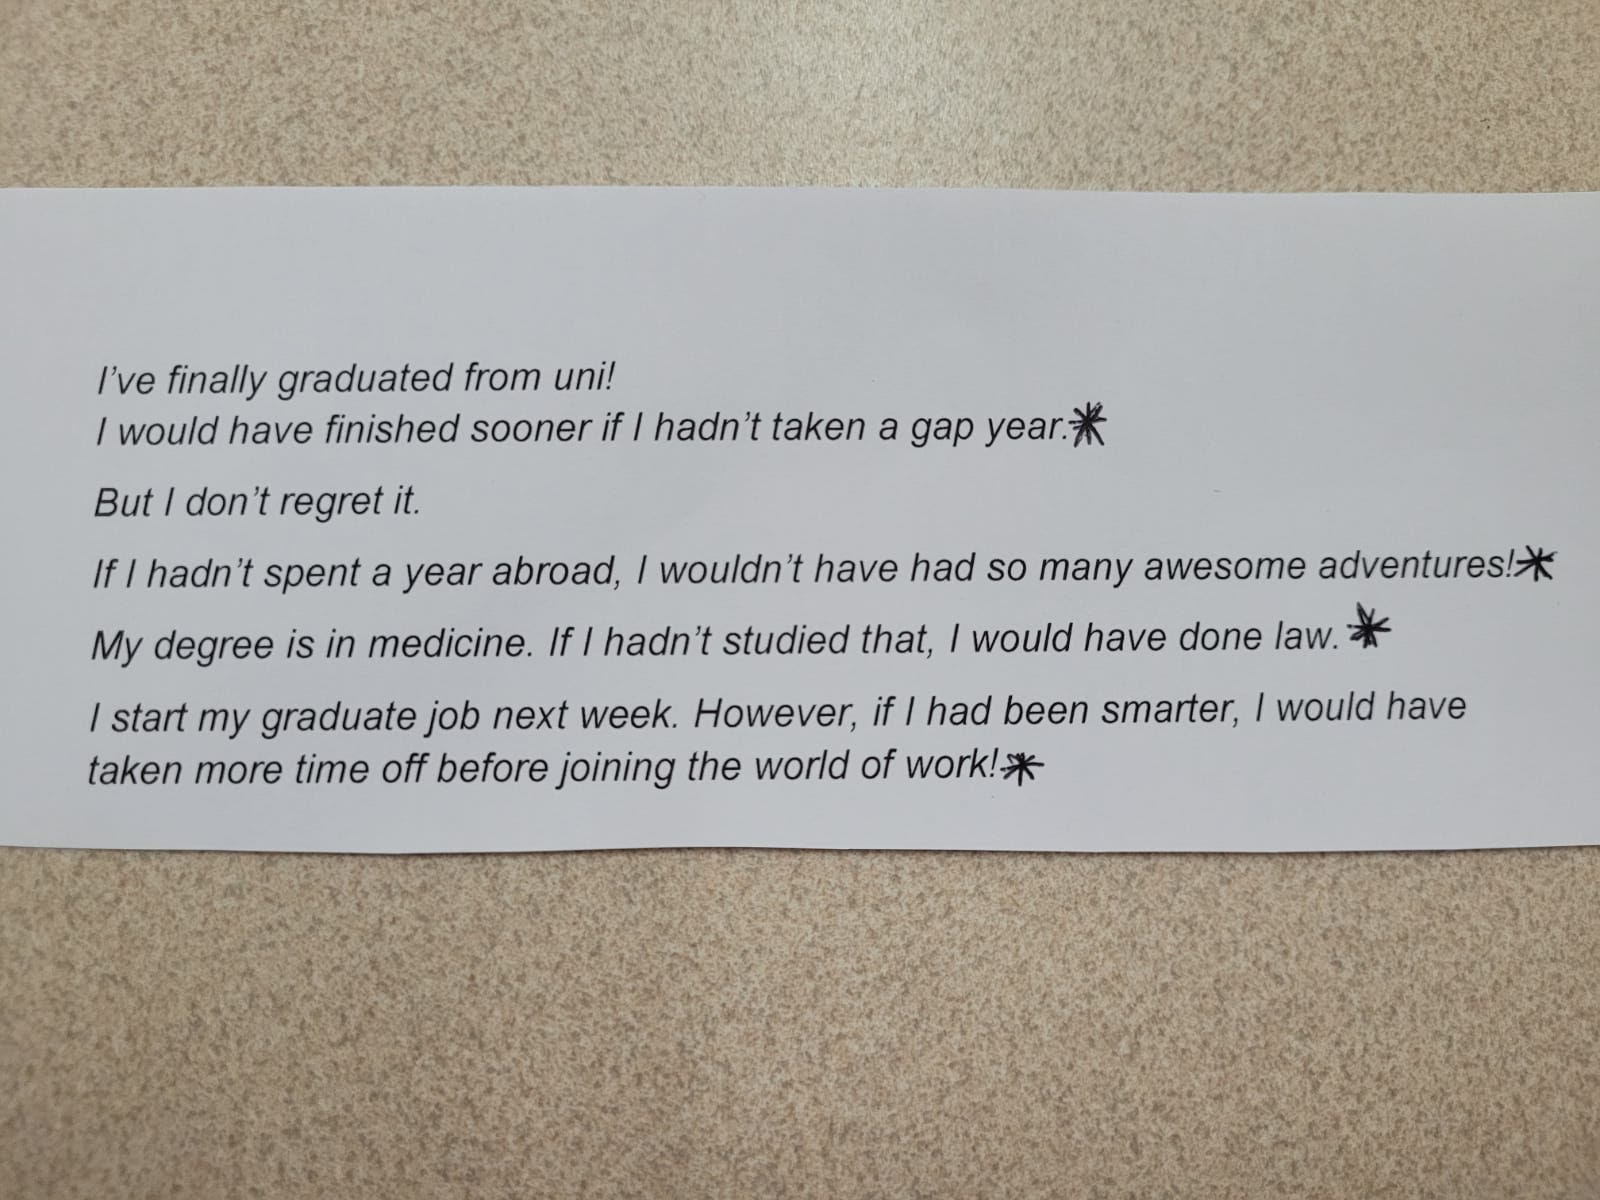 I've finally graduated from uni!
I would have finished sooner if I hadn't taken a gap year.*
But I don't regret it.
If I hadn't spent a year abroad, I wouldn't have had so many awesome adventures!*
My degree is in medicine. If I hadn't studied that, I would have done law. *
I start my graduate job next week. However, if I had been smarter, I would have
taken more time off before joining the world of work!*